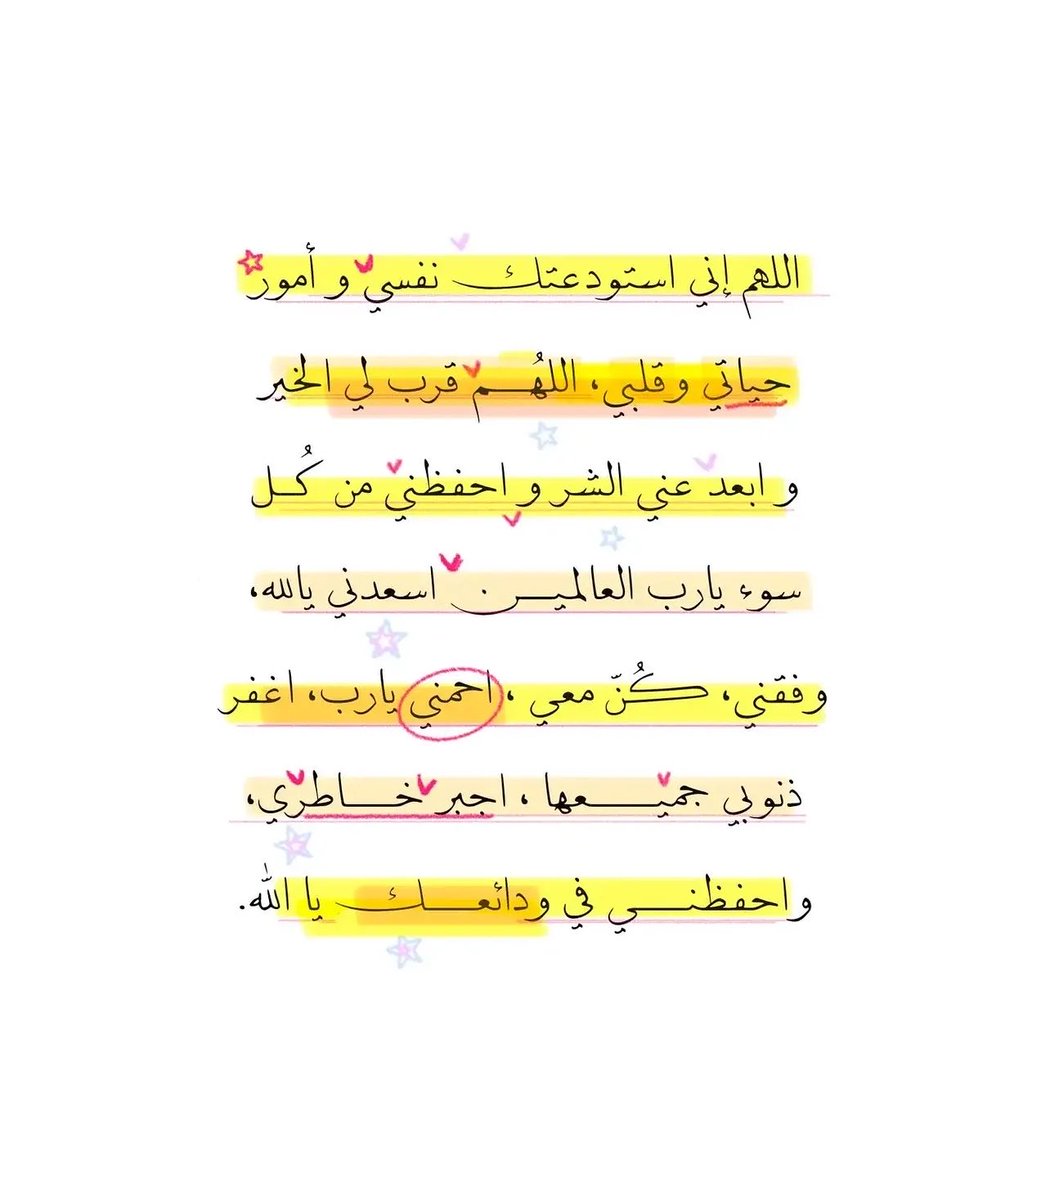 اللهم إني استودعتك نفسي و أمور
حياتي وقلبي، اللهُم قرب لي الخير
و ابعد عني الشر و احفظني من كُل
سوء يارب العالمين اسعدني يالله،
وفقني، كُنّ معي ، احمني يارب، اغفر
ذنوبي جميعها ، اجبر خاطري،
واحفظني في ودائعك يا الله.